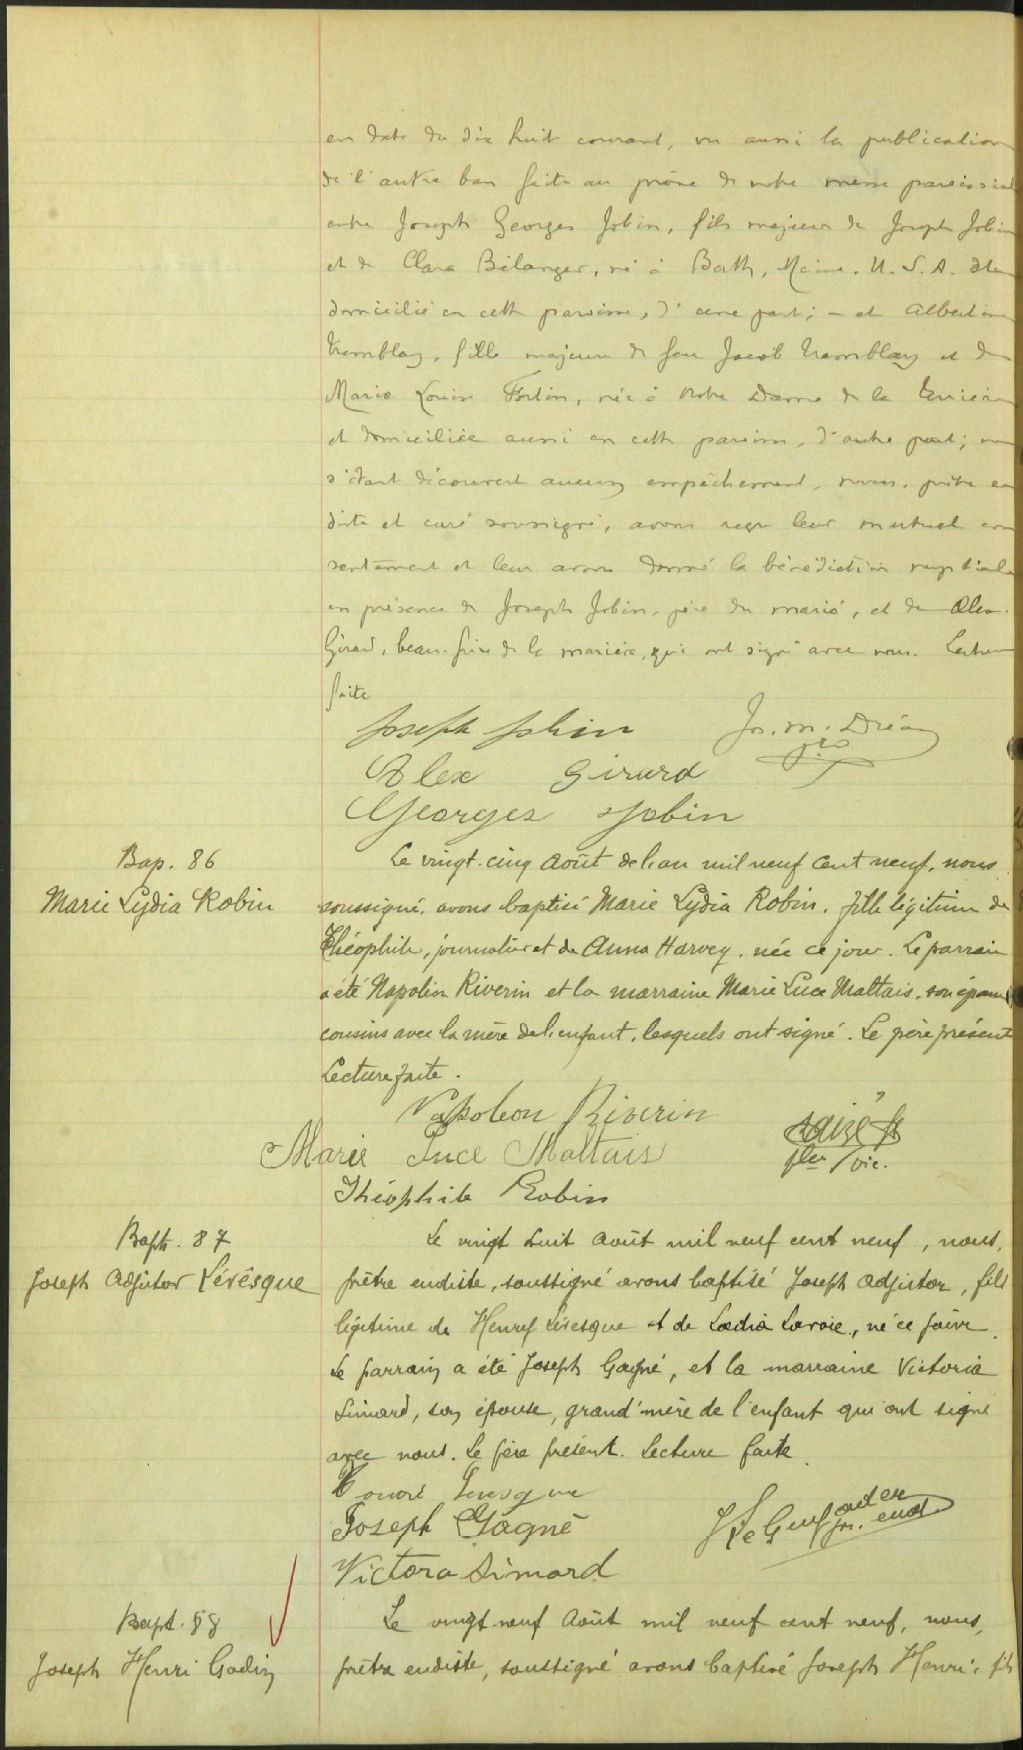 en date du dix huit courant, vu aussi la publication
de l'autre ban faite au prône de notre messe paroissial
entre Joseph Georges Jobin, fils majeur de Joseph Jobin
et de Clara Bélanger, né à Bath, Maine. U. S. A. et
domicilié en cette paroisse, d'une part; - et Albertine
Tremblay, fille majeure de feu Jacob Tremblay et de
Marie Louise Fortin, née à Notre Dame de la
et domiciliée aussi en cette paroisse, d'autre part; ne
s'étant découvert aucun empêchement, nous, prêtre eu
diste et curé soussigné, avons reçu leur mutuel con
sentement et leur avons donné la bénédiction nuptiale
en présence de Joseph Jobin, père du marié, et de Alex.
Girard, beau-frère de la mariée, qui ont signé avec nous. Lecture
faite
Joseph Jobin Js. m. Dréan
ptre
Alex Girard
Georges Jobin
Bap. 86
Marie Lydia Robin
Le vingt-cinq Août de l'an mil neuf cent neuf, nous
soussigné, avons baptisé Marie Lydia Robin, fille légitime de
Théophile, journalier et de Anna Harvey, née ce jour. Le parrain
a été Napoléon Riverin et la marraine Marie Luce Maltais, son épouse,
cousins avec la mère de l'enfant, lesquels ont signé. Le père présent
Lecture faite.
Napoleon Riverin
Marie Luce Maltais
vic.
Théophile Robin
Bapt. 87
Joseph Adjutor Lévêsque
Le vingt huit Août mil neuf cent neuf, nous,
prêtre eudiste, soussigné avons baptisé Joseph Adjutor, fils
légitime de Henry Lévesque et de Lædia Lavoie, né ce jour.
Le parrain a été Joseph Gagné, et la marraine Victoria
Simard, son épouse, grand'mère de l'enfant qui ont signé
avec nous. Le père présent. Lecture faite.
Honoré Levesque
Joseph Gagné
Le Gui
pr. eud.
Victora Simard
Bapt. 88
Joseph Henri Godin
Le vingt-neuf Août mil neuf cent neuf, nous,
prêtre eudiste, soussigné avons baptisé Joseph Henri, fils